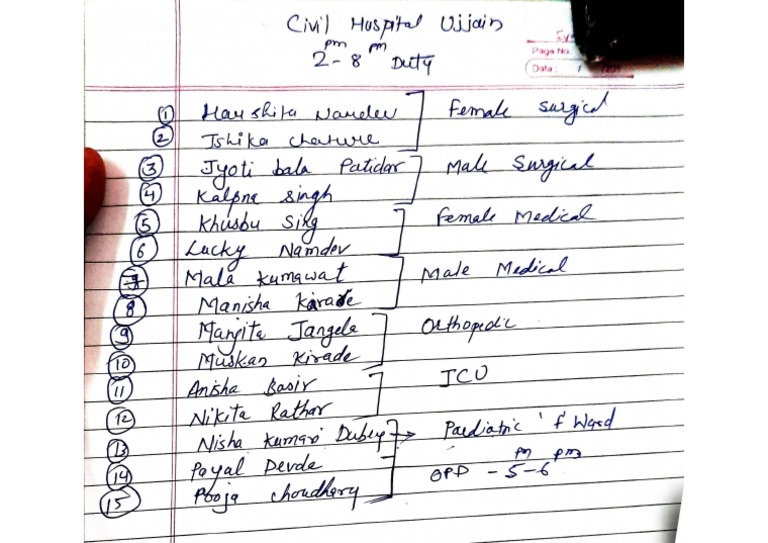 Civil Hospital Ujjain
2 pm - 8 pm Duty
Page No.
Date:
① Harshita Namdev Female Surgical
② Ishika
③ Jyoti bala Patidar Male Surgical
④ Kalpna Singh
⑤ Khusbu Sing Female Medical
⑥ Lucky Namdev
Mala Kumawat Male Medical
⑧ Manisha Karade
⑨ Manjita Jangela Orthopedic
⑩ Muskan Kirade
⑪ Anisha Basir ICU
⑫ Nikita Rathar
⑬ Nisha Kumari Dubey → Paediatric 'f Ward
⑭ Payal Devda
⑮ Pooja Choudhary OPD - 5 pm - 6 pm